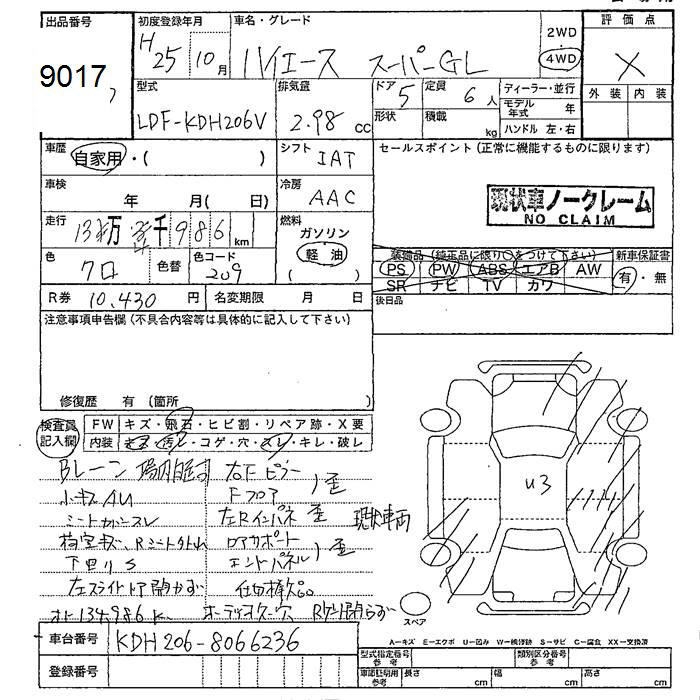 出品番号
9017
初度登録年月
H 25 年 10 月
車名・グレード
ハイエース スーパーGL
2WD
4WD
評価点
X
外装 内装
型式
LDF-KDH206V
排気量
2.98 cc
ドア 5
形状
定員 6人
積載 kg
ディーラー・並行
モデル年式 年
ハンドル 左・右
車歴
自家用・( )
シフト
IAT
セールスポイント (正常に機能するものに限ります)
車検
年 月( 日)
冷房
AAC
現状車ノークレーム
NO CLAIM
走行
13 万 千 986 km
燃料
ガソリン
軽油
( )
色
クロ
色替
色コード
209
装備品 (純正品に限り○をつけて下さい)
PS PW ABS エアB AW
SR ナビ TV カワ
新車保証書
有・無
R券 10,430 円
名変期限 月 日
後日品
注意事項申告欄(不具合内容等は具体的に記入して下さい)
修復歴 有 (箇所 )
検査員記入欄
FW キズ・飛石・ヒビ割・リペア跡・X要
内装 キズ・汚レ・コゲ・穴・スレ・キレ・破レ
右Fピラー
Fフロア
歪
小キズAU
左Rインパネ 歪
現状車両
シートカバースレ
リアサポート
エンドパネル
歪
下回りS
左スライドドア開かず
オーディオ欠 穴
車台番号
KDH206-8066236
登録番号
u3
スペア
A―キズ E―エクボ U―凹み W―補修跡 S―サビ C―腐食 XX―交換済
型式指定番号 参考
類別区分番号 参考
車庫証明用 参考
長さ cm
幅 cm
高さ cm